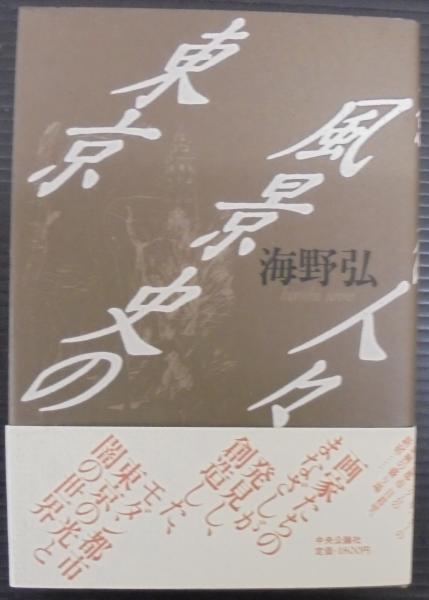 東京
風景史の
人々
海野弘
画家たちの
まなざしが
発見し、
創造した、
モダン都市
東京の光と
闇の世界
中央公論社
定価・1800円